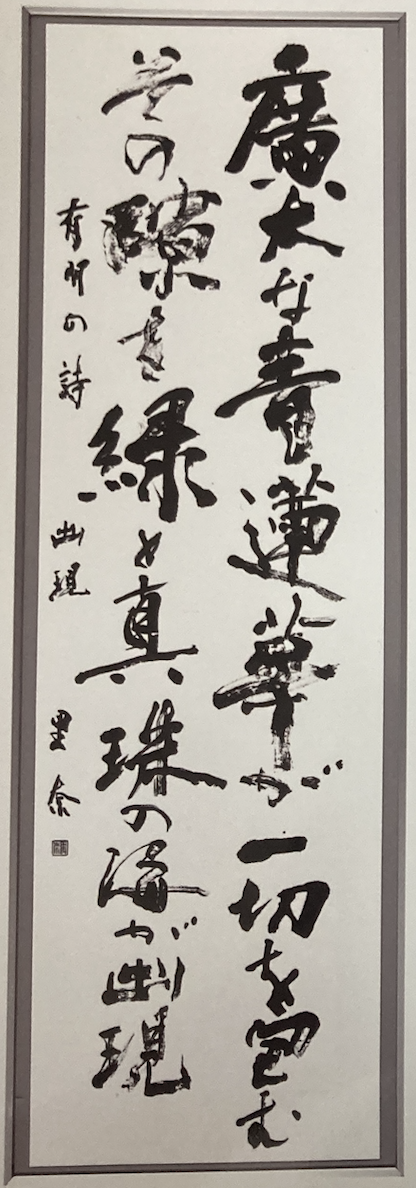 廣大な青蓮華が一切を包む
其の隙を緑と真珠の海が幽現
有明の詩 幽現 里奈